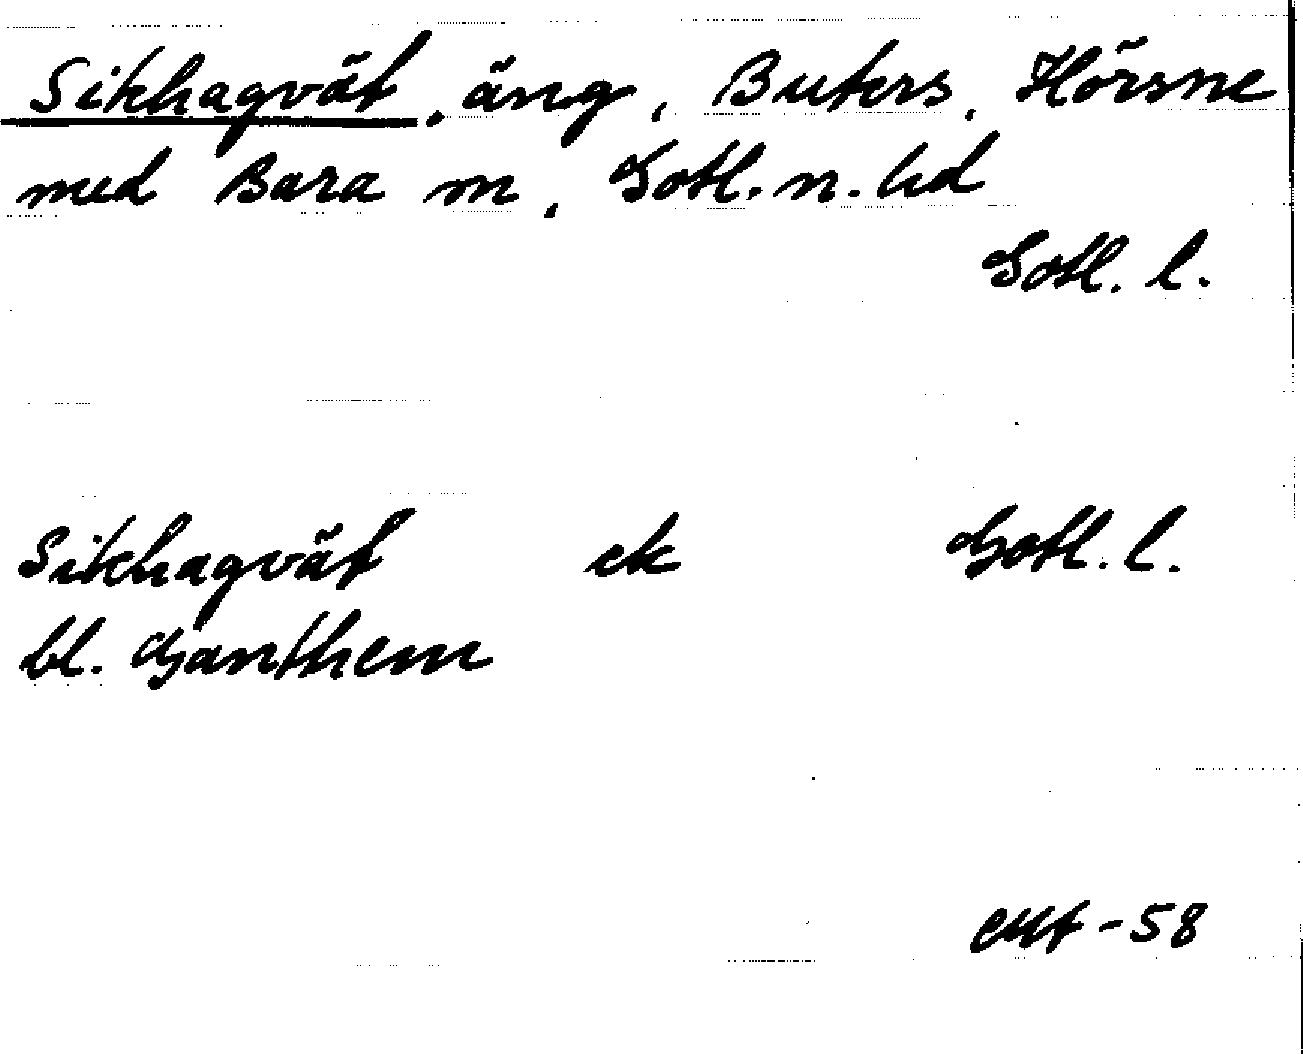 Sikhagvät, äng, Buters, Hörsne
med Bara sn, Gotl. n. hd
Gotl. l.
Sikhagvät ek Gotl. l.
bl. Ganthem
-58